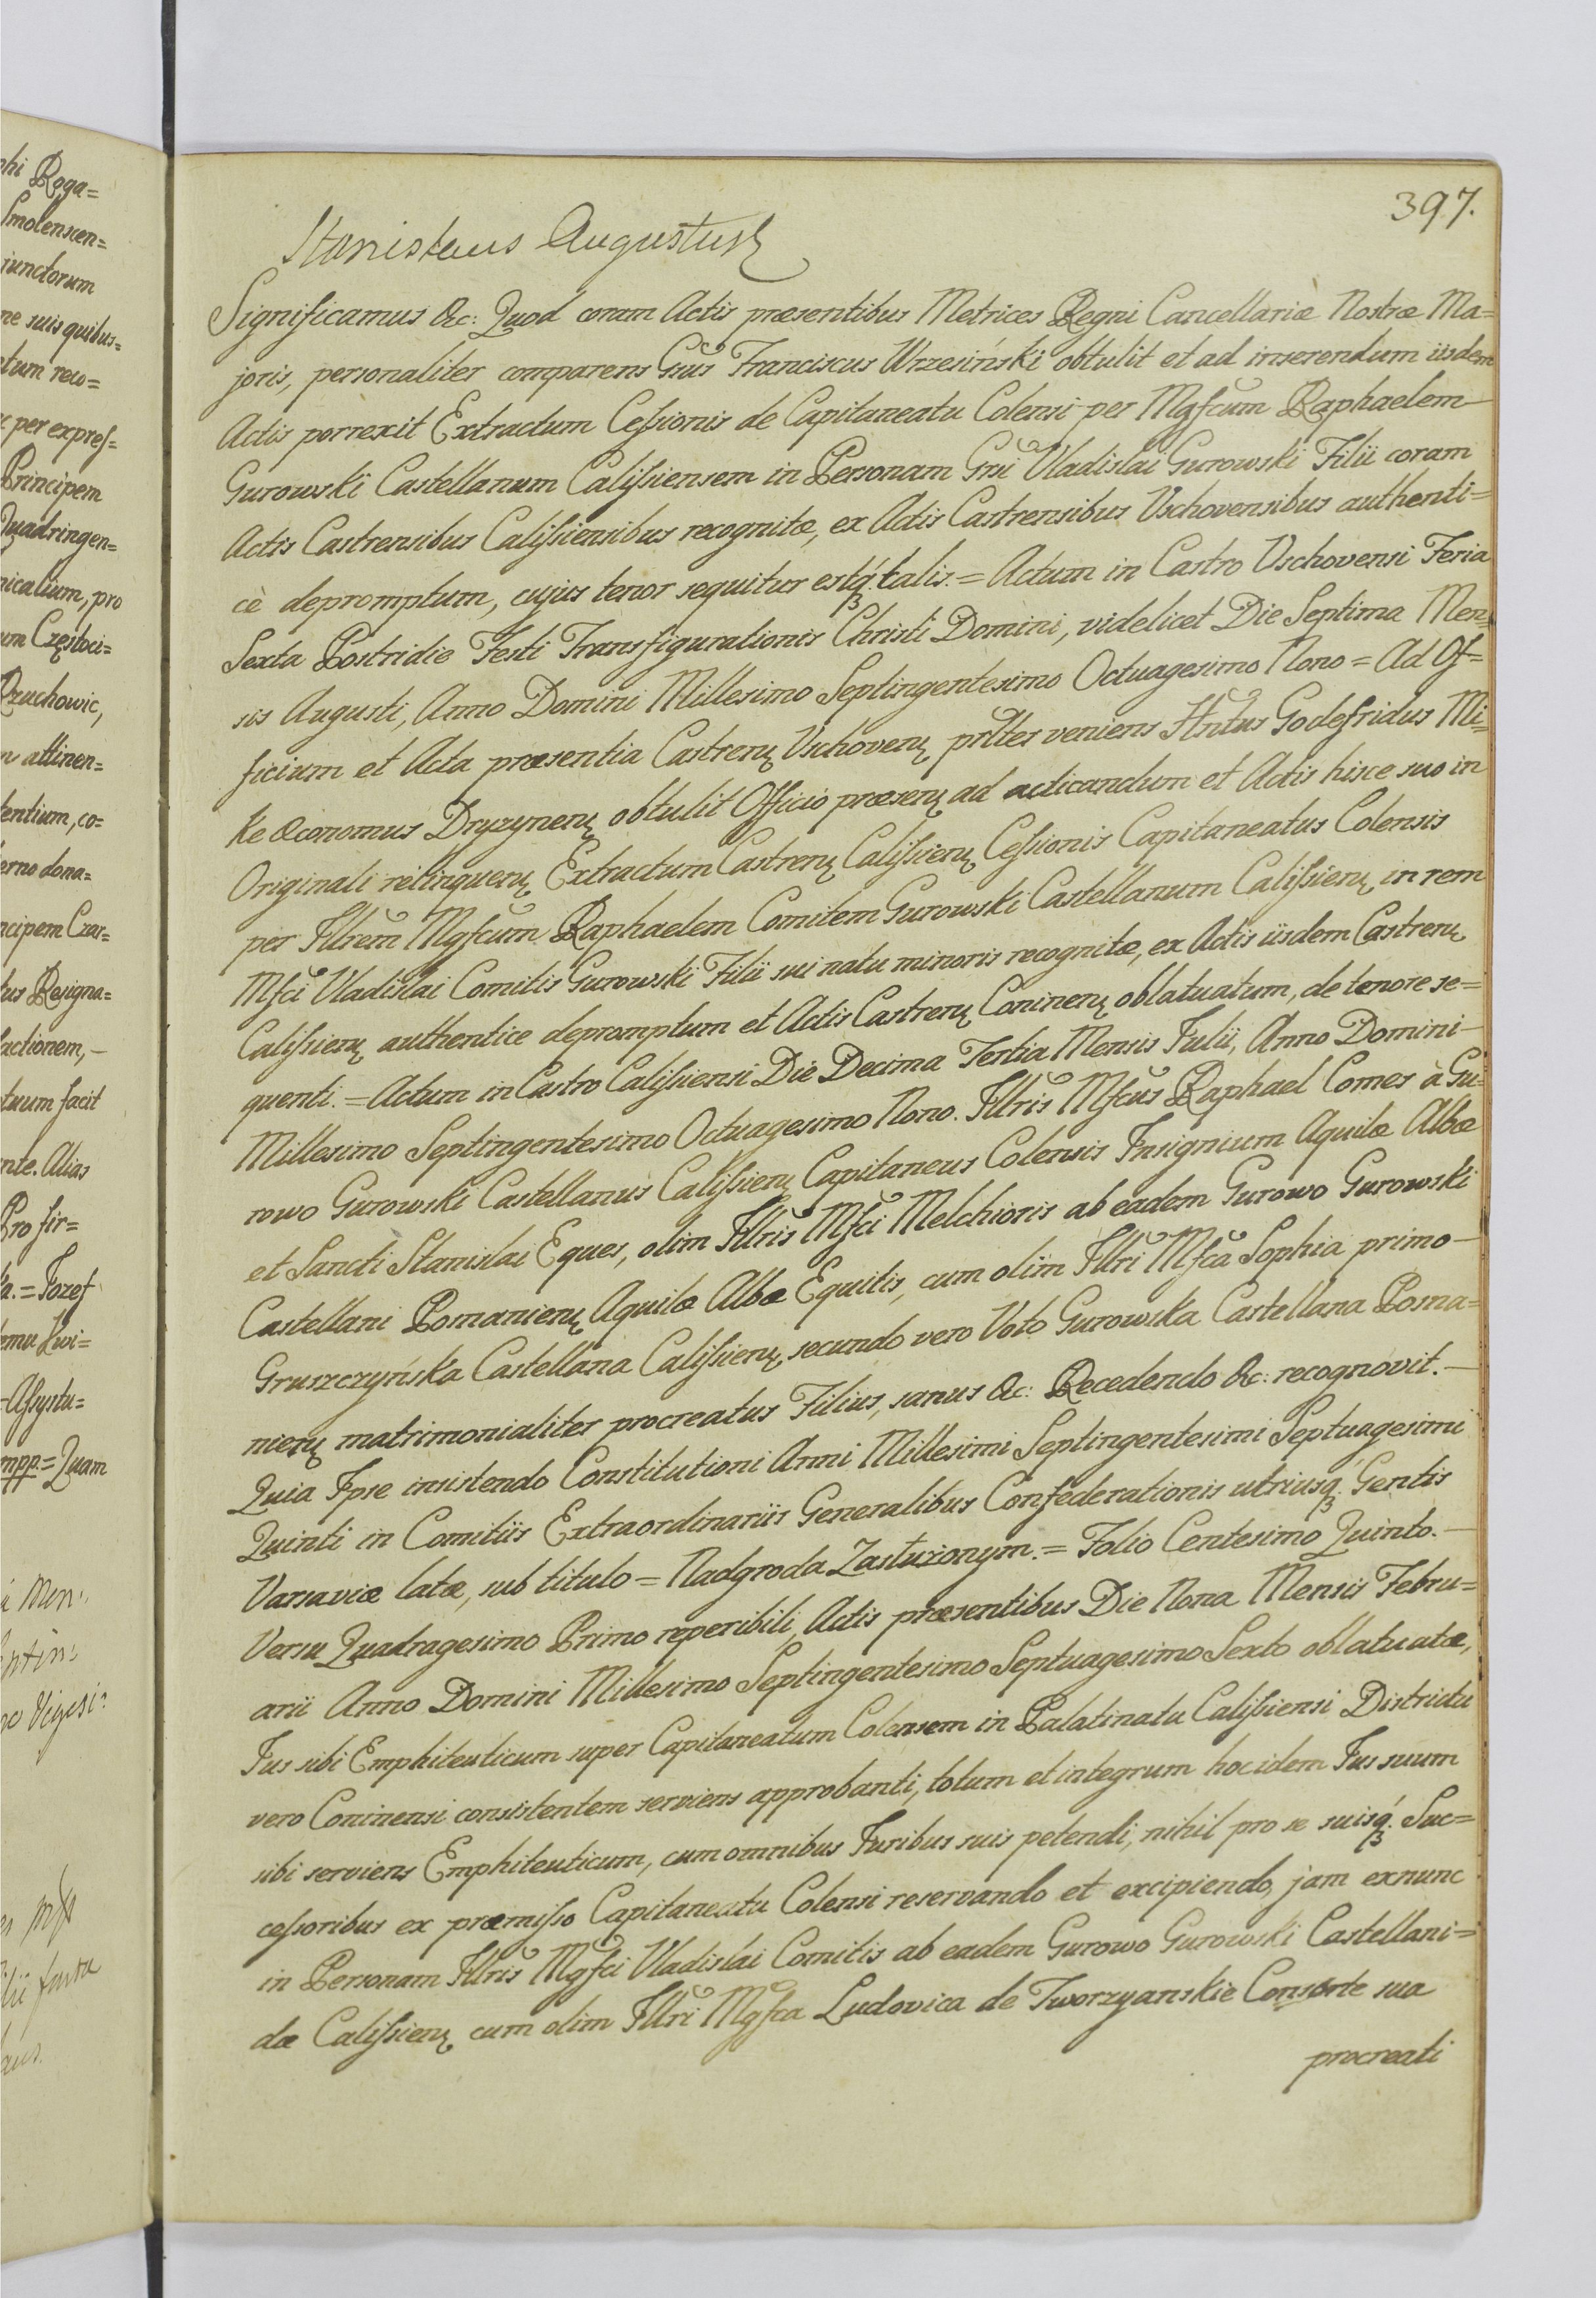 397.
Stanislaus Augustus
Significamus &c: Quod coram Actis præsentibus Metrices Regni Cancellariæ Nostræ Ma=
joris, personaliter comparens Gsus Franciscus Wrzesiński obtulit et ad inserendum iisdem
Actis porrexit Extractum Cessionis de Capitaneatu Colensi per Mgfcum Raphaelem
Gurowski Castellanum Calissiensem in Personam Gsi Vladislai Gurowski Filii coram
Actis Castrensibus Calissiensibus recognitæ, ex Actis Castrensibus Vschovensibus authenti=
cè depromptum, cujus tenor sequitur estq́ꝫ talis. = Actum in Castro Vschovensi Feria
Sexta Postridie Festi Transfigurationis Christi Domini, videlicet Die Septima Men=
sis Augusti, Anno Domini Millesimo Septingentesimo Octuagesimo Nono = Ad Of=
ficium et Acta præsentia Castrenꝭ Vschovenꝭ prslter veniens Hntus Godefridus Mi=
ke Œconomus Dryzynenꝭ obtulit Officio præsenꝭ ad acticandum et Actis hisce suo in
Originali relinquenꝭ Extractum Castrenꝭ Calissienꝭ Cessionis Capitaneatus Colensis
per Illrem Mgfcum Raphaelem Comitem Gurowski Castellanum Calissienꝭ in rem
Mfci Vladislai Comitis Gurowski Filii sui natu minoris recognitæ, ex Actis iisdem Castrenꝭ
Calissienꝭ authentice depromptum et Actis Castrenꝭ Coninenꝭ oblatuatum, de tenore se=
quenti. = Actum in Castro Calissiensi Die Decima Tertia Mensis Julii, Anno Domini
Millesimo Septingentesimo Octuagesimo Nono. Illris Mfcus Raphael Comes à Gu=
rowo Gurowski Castellanus Calissienꝭ Capitaneus Colensis Insignium Aquilæ Albæ
et Sancti Stanislai Eques, olim Illris Mfci Melchioris ab eadem Gurowo Gurowski
Castellani Posnanienꝭ Aquilæ Albæ Equitis, cum olim Illri Mfca Sophia primo
Gruszczyńska Castellana Calissienꝭ, secundo vero Voto Gurowska Castellana Posna=
nienꝭ matrimonialiter procreatus Filius, sanus &c: Recedendo &c: recognovit.
Quia Ipse insistendo Constitutioni Anni Millesimi Septingentesimi Septuagesimi
Quinti in Comitiis Extraordinariis Generalibus Confederationis utriusq́ꝫ Gentis
Varsaviæ latæ, sub titulo = Nadgroda Zasłużonym. = Folio Centesimo Quinto.
Versu Quadragesimo Primo reperibili, Actis præsentibus Die Nona Mensis Febru=
arii Anno Domini Millesimo Septingentesimo Septuagesimo Sexto oblatuatæ,
Jus sibi Emphiteuticum super Capitaneatum Colensem in Palatinatu Calissiensi Districtu
vero Coninensi consistentem serviens approbanti, totum et integrum hoc idem Jus suum
sibi serviens Emphiteuticum, cum omnibus Juribus suis petendi, nihil pro se suisq́ꝫ Suc=
cessoribus ex præmisso Capitaneatu Colensi reservando et excipiendo, jam exnunc
in Personam Illris Mgfci Vladislai Comitis ab eadem Gurowo Gurowski Castellani=
dæ Calissienꝭ cum olim Illri Mgfca Ludovica de Tworzyanskie Consorte sua
procreati